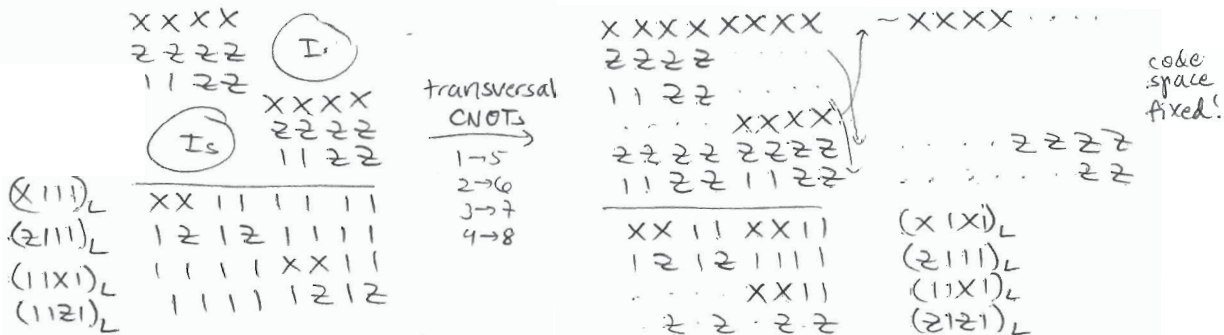 X X X X
Z Z Z Z Is
1 1 Z Z
X X X X
Is Z Z Z Z
1 1 Z Z
(X111)L X X 1 1 1 1 1 1
(Z111)L 1 Z 1 Z 1 1 1 1
(11X1)L 1 1 1 1 X X 1 1
(11Z1)L 1 1 1 1 1 Z 1 Z
transversal
CNOTs
1→5
2→6
3→7
4→8
X X X X X X X X ~ X X X X · · · ·
Z Z Z Z · · · ·
1 1 Z Z · · · ·
· · · · X X X X
Z Z Z Z Z Z Z Z · · · · Z Z Z Z
1 1 Z Z 1 1 Z Z · · · · · · Z Z
code
space
fixed!
X X 1 1 X X 1 1 (X1X1)L
1 Z 1 Z 1 1 1 1 (Z111)L
· · · · X X 1 1 (11X1)L
· Z · Z · Z · Z (Z1Z1)L